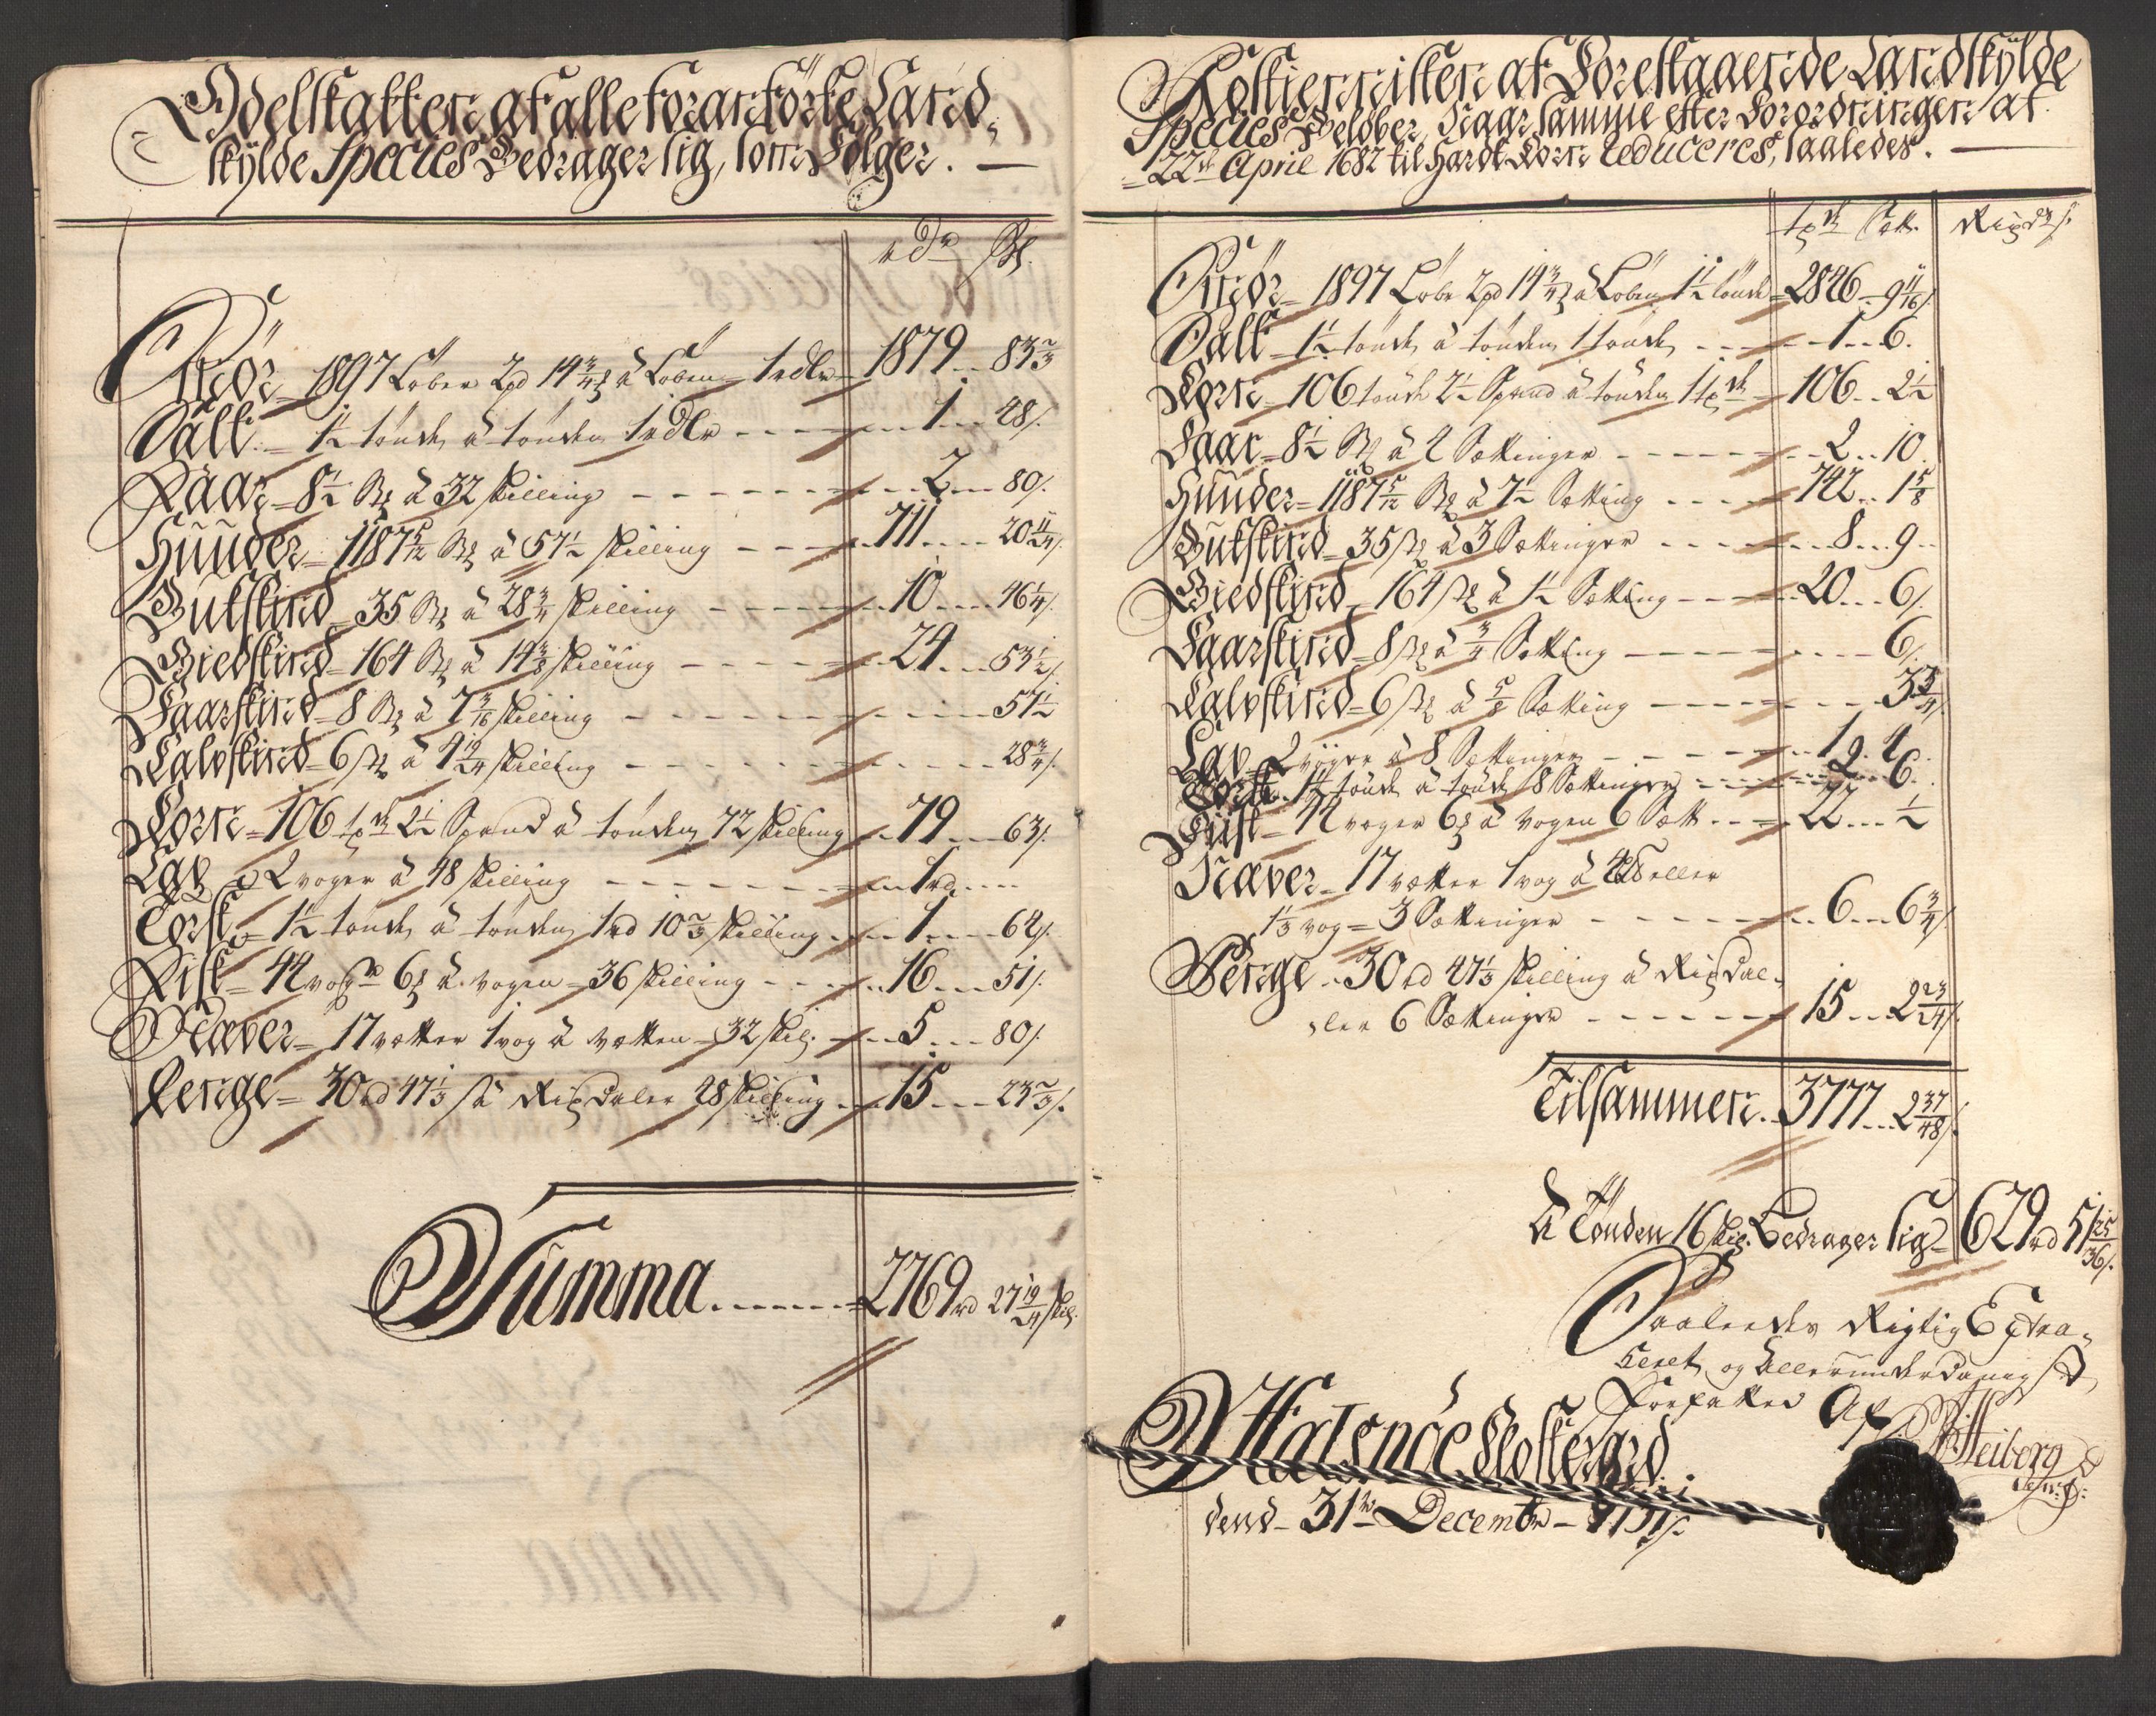 Odelskatten af alle foranførte Land-
skÿlde Species Bedrager sig, som Følger. —
rdr ß.
Smør = 1897 Løber 2 pd 14 3/4 à Løben 1 rdlr 1879 .. 83 2/3
Salt = 1 1/2 tønde à tønden 1 rdlr 1 .. 48/.
Faar = 8 1/2 à 32 skilling 2 .. 80/.
Huuder = 1187 5/12 à 57 1/2 skilling 711 .. 20 11/24/.
Bukskind = 35 à 28 3/4 skilling 10 .. 46 1/4/.
Giedskind = 164 à 14 3/8 skilling 24 .. 53 1/2/.
Faarskind = 8 à 7 3/16 skilling 57 1/2
Kalvskind = 6 à 4 19/24 skilling 28 3/4/.
Korn = 106 2 1/2 Spand à tønden 72 skilling 79 .. 63/.
Lax = 2 voger à 48 skilling 1 rd ..
Torsk = 1 1/2 tønde à tønden 1 rd 10 2/3 skilling 1 .. 64/.
Fisk = 44 voger 6 à vogen = 36 skilling 16 .. 51/.
Næver = 17 vetter 1 vog à vetten = 32 skil. 5 .. 80/.
Penge = 30 rd 47 1/3 ß à Rixdaler 48 skilling 15 .. 23 2/3/.
Summa ...... 2769 rd 27 19/24 skil.
Rostiennisten af Forestaaende Landskÿlde
Species Beløber, Naar samme efter Forordningen af
22de April 1682 til Hardt Korn reduceres, saaledes. —
Sett. Rixdr ß.
Smør = 1897 Løbe 2 pd 14 3/4 à Løben 1 1/2 tønde = 2846 .. 9 11/16/.
Salt = 1 1/2 tønde à tønden 1 tønde 1 .. 6.
Korn = 106 tønde 2 1/2 Spand à tønden 1 106 .. 2 1/2
Faar = 8 1/2 à 4 Settinger 2 .. 10.
Huuder = 1187 5/12 à 7 1/2 Setting 742 .. 1 5/8
Bukskind = 35 à 3 Settinger 8 .. 9
Giedskind = 164 à 1 1/2 Setting 20 .. 6/.
Faarskind = 8 à 3/4 Setting 6/.
Kalvskind = 6 à 5/8 Setting 3 3/4/.
Lax = 2 voger à 8 Settinger 1 .. 4
Torsk = 1 1/2 tønde à tønde 18 Settinger 2 .. 6.
Fisk = 44 voger 6 à vogen 6 Sett. 22 .. 1/2
Næver = 17 vetter 1 vog à eller
1 1/3 vog = 3 Settinger 6 .. 6 3/4/.
Penge = 30 rd 47 1/3 skilling à Rixdal-
ler 6 Settinger 15 .. 2 23/24/.
Tilsammen .. 3777 .. 2 37/48/.
à Tønden 16 skil. Bedrager sig = 629 rd 51 25/36/.
Saaledes Rigtig Extra-
heret, og Allerunderdanigst
Forfattet Af
Halsnøe Klostergrd. WHeiborg
dend = 31te Decembr = 1731/.